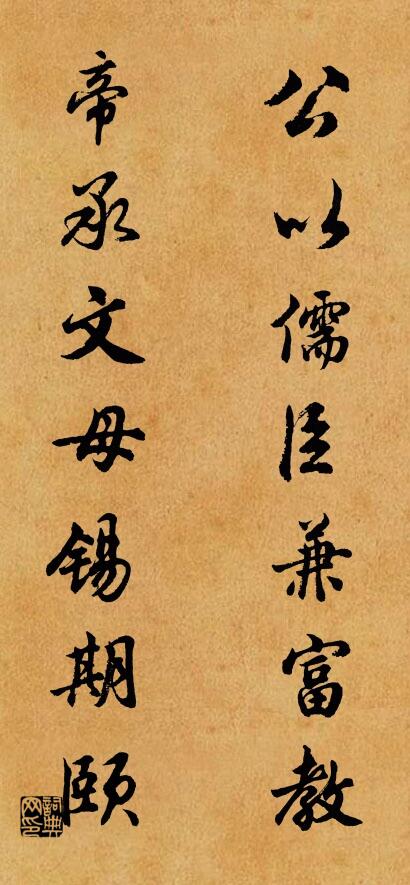 公以儒臣兼富教
帝承文母锡期颐
詞典网印